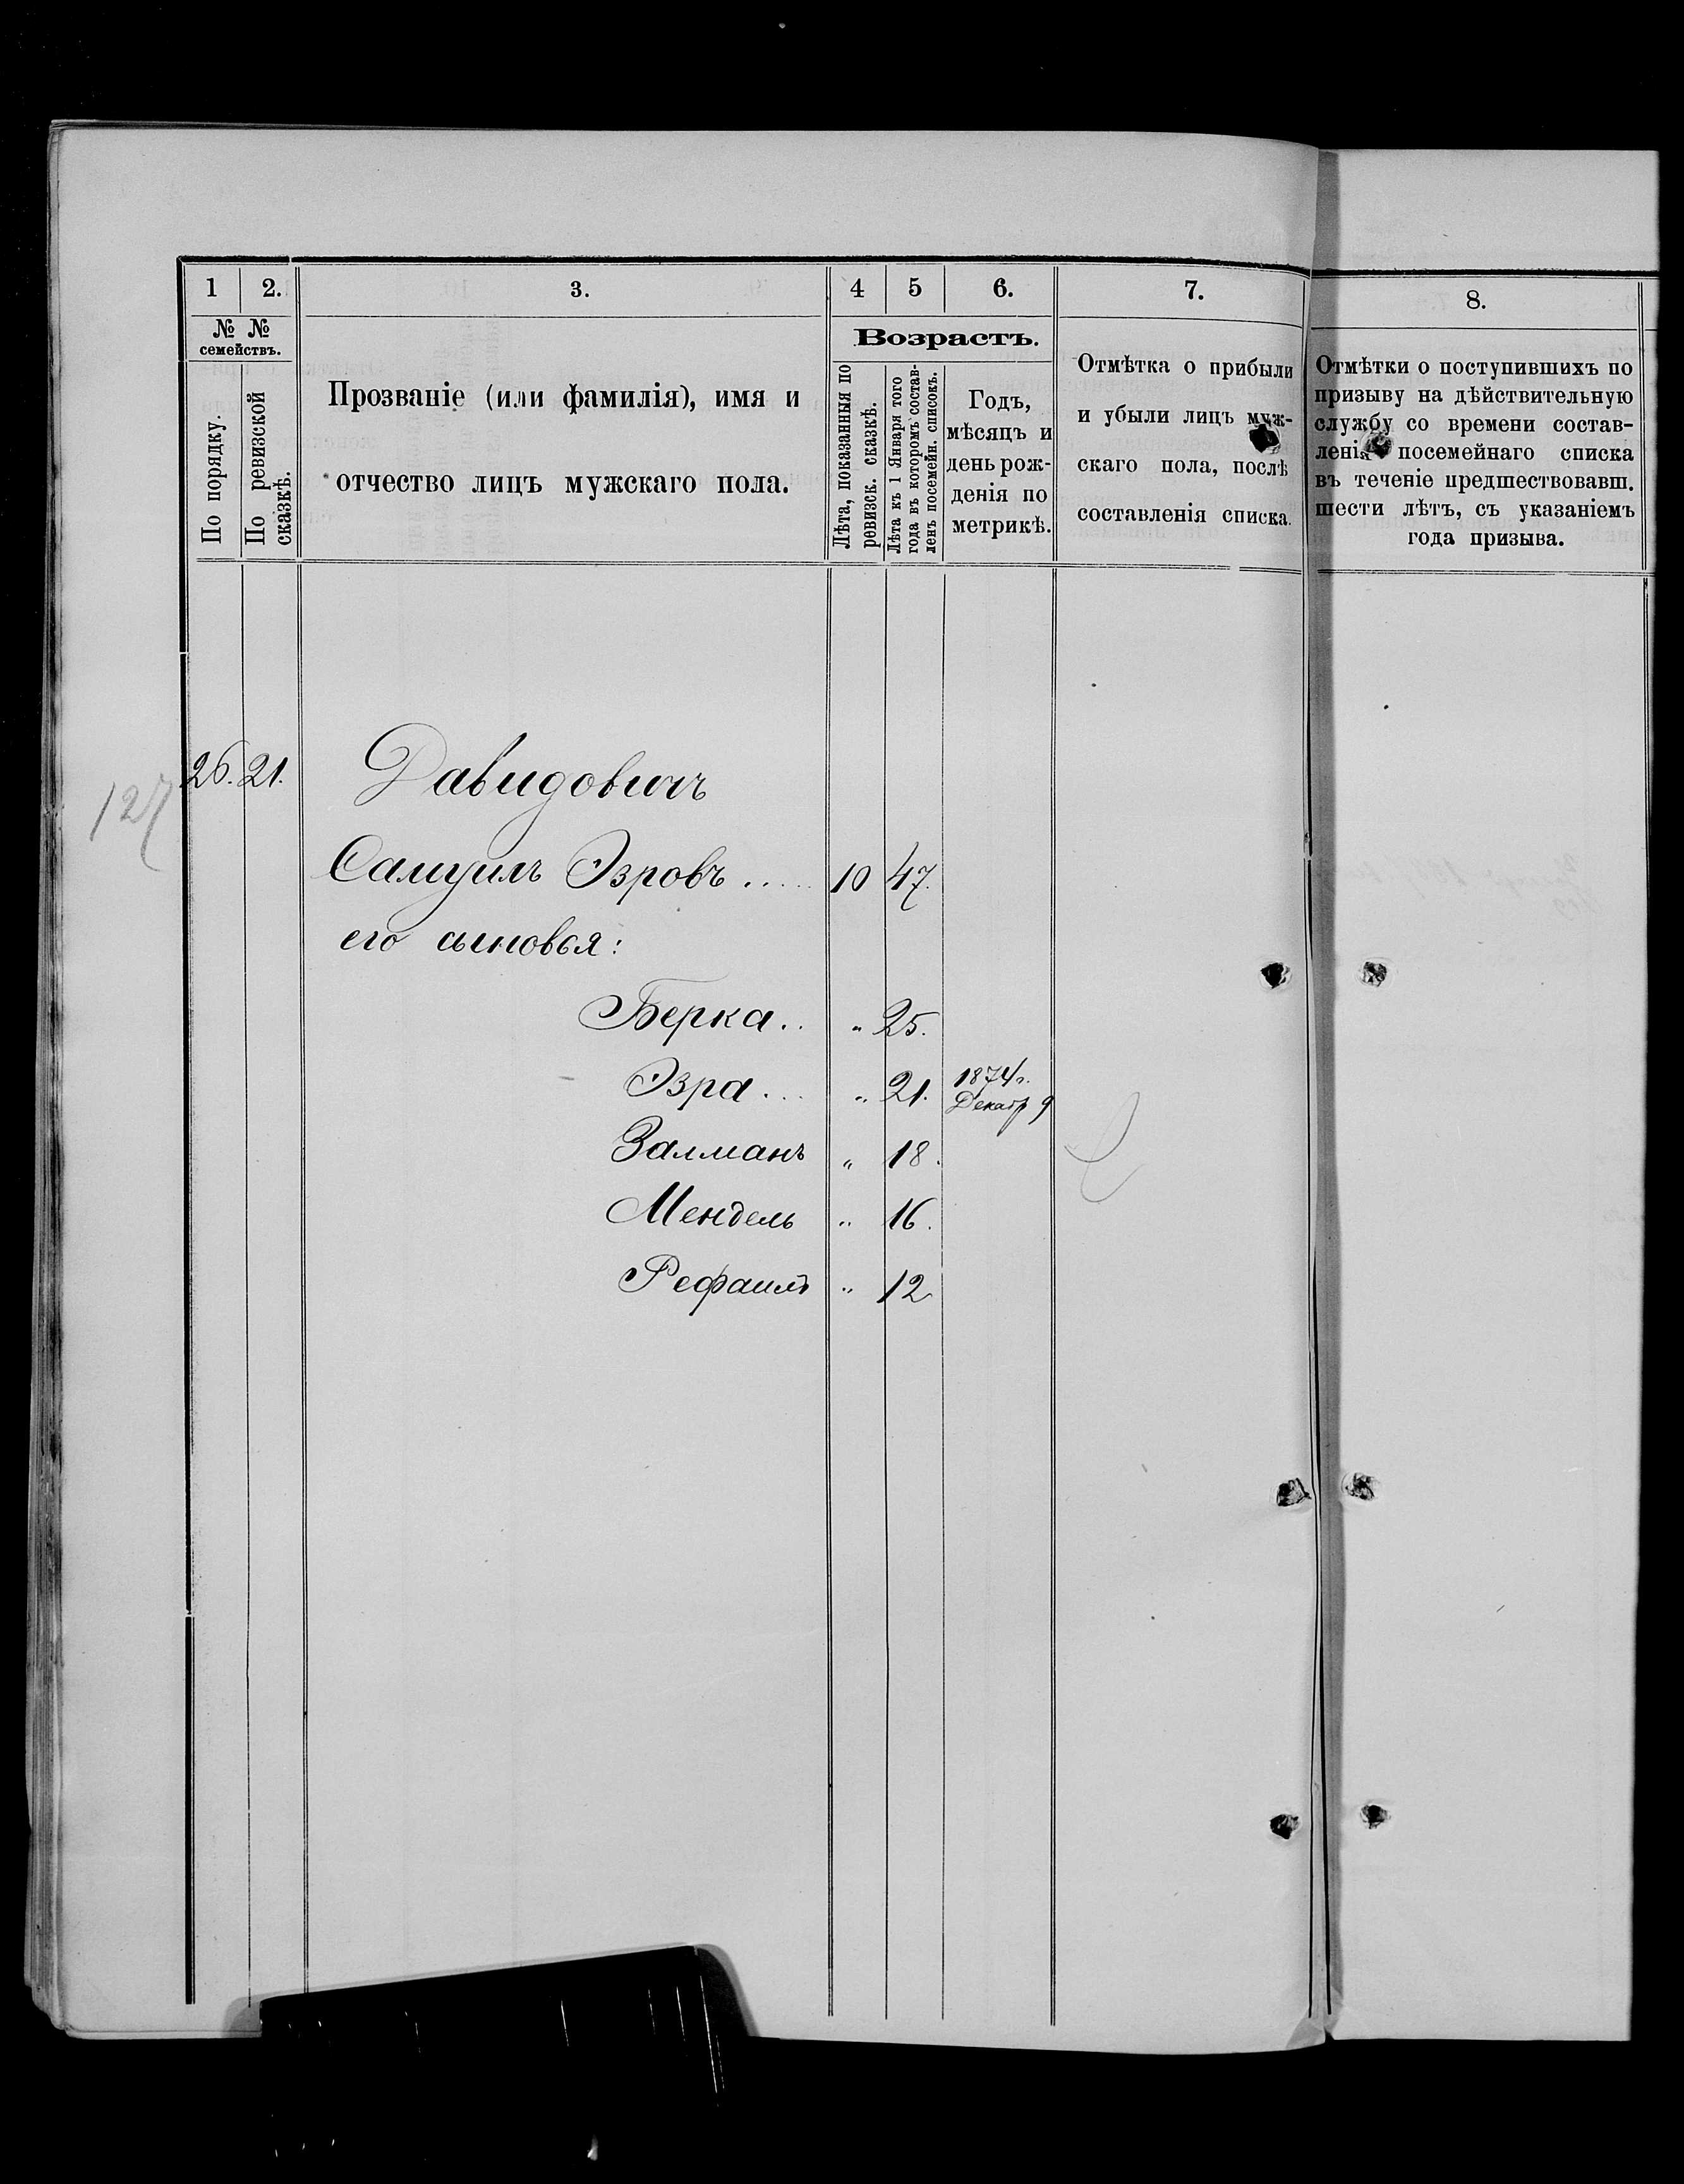 1 2. 3. 4 5 6. 7. 8.
№ №
семействъ.
По порядку.
По ревизской
сказкѣ.
Прозваніе (или фамилія), имя и
отчество лицъ мужскаго пола.
Возрастъ.
Лѣта, показанныя по
ревизск. сказкѣ.
Лѣта къ 1 Января того
года въ которомъ состав-
ленъ посемейн. списокъ.
Годъ,
мѣсяцъ и
день рож-
денія по
метрикѣ.
Отмѣтка о прибыли
и убыли лицъ муж-
скаго пола, послѣ
составленія списка.
Отмѣтки о поступившихъ по
призыву на дѣйствительную
службу со времени состав-
ленія посемейнаго списка
въ теченіе предшествовавш.
шести лѣтъ, съ указаніемъ
года призыва.
127
26. 21. Давидовичъ
Самуилъ Эзровъ ..... 10 47.
его сыновья:
Берка .. " 25.
Эзра ... " 21. 1874 г.
Декабр 9
Залманъ " 18.
Мендель " 16.
Рефаилъ " 12